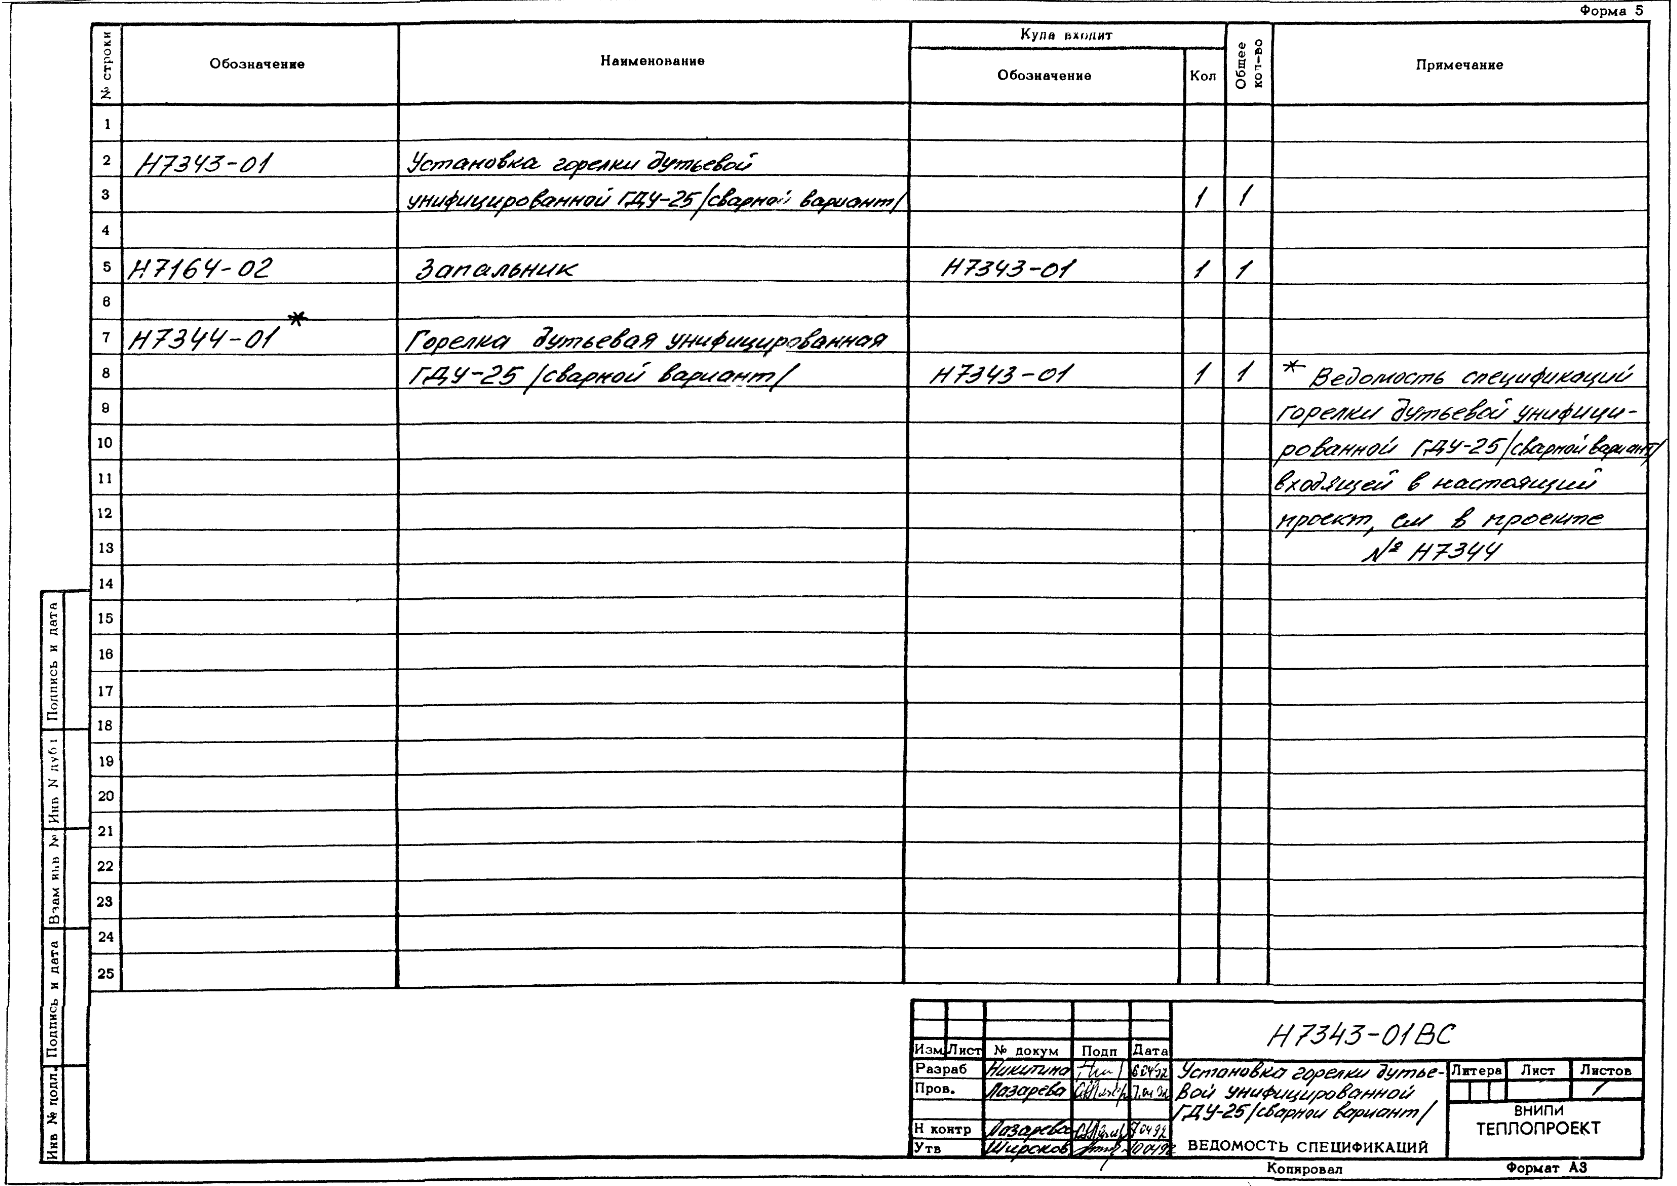 Форма 5
№ строки
Обозначение
Наименование
Куда входит
Обозначение
Кол
Общее кол-во
Примечание
1
2 Н7343-01 Установка горелки дутьевой
3 унифицированной ГДУ-25 /сварной вариант/ 1 1
4
5 Н7164-02 Запальник Н7343-01 1 1
6
7 Н7344-01* Горелка дутьевая унифицированная
8 ГДУ-25 /сварной вариант/ Н7343-01 1 1 * Ведомость спецификаций
9 горелки дутьевой унифици-
10 рованной ГДУ-25 /сварной вариант/
11 входящей в настоящий
12 проект, см в проекте
13 № Н7344
14
15
16
17
18
19
20
21
22
23
24
25
Подпись и дата
Инв N дубл
Взам инв №
Подпись и дата
Инв № подл.
Изм Лист № докум Подп Дата
Разраб Никитина 6.04.92
Пров. Лазарева 7.04.92
Н контр Лазарева 7.04.92
Утв Широков 10.04.92
Н7343-01ВС
Установка горелки дутье-
вой унифицированной
ГДУ-25 /сварной вариант/
ВЕДОМОСТЬ СПЕЦИФИКАЦИЙ
Литера Лист Листов
1
ВНИПИ
ТЕПЛОПРОЕКТ
Копировал
Формат А3